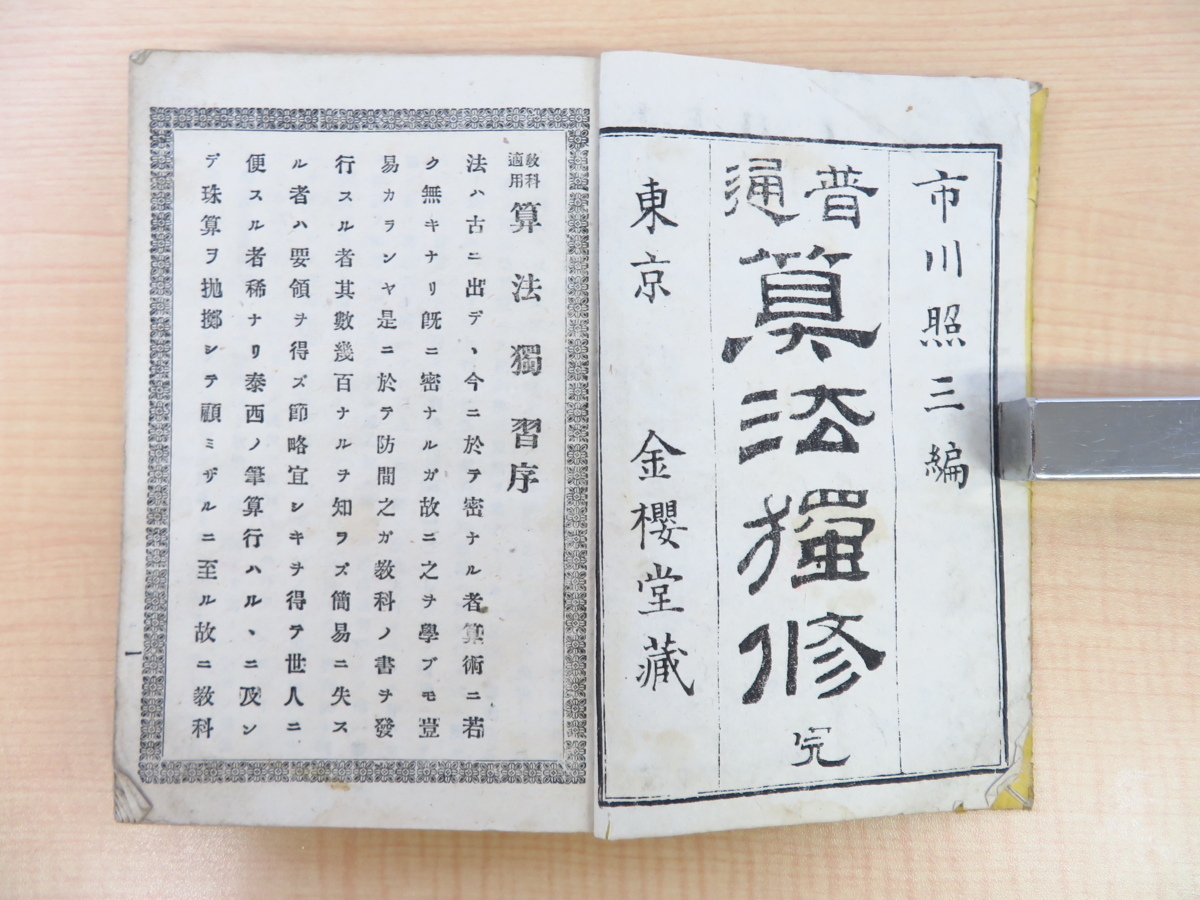 市川照三編
普通
算法獨修 完
東京 金櫻堂藏
教科適用 算法獨習序
法ハ古ニ出デヽ今ニ於テ密ナル者算術ニ若
ク無キナリ既ニ密ナルガ故ニ之ヲ學ブモ豈
易カランヤ是ニ於テ防間之ガ教科ノ書ヲ發
行スル者其數幾百ナルヲ知ラズ簡易ニ失ス
ル者ハ要領ヲ得ズ節略宜シキヲ得テ世人ニ
便スル者稀ナリ泰西ノ筆算行ハルヽニ及ン
デ珠算ヲ抛擲シテ顧ミザルニ至ル故ニ教科
一